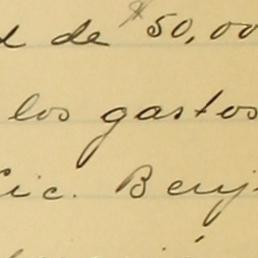 d de $50,00
los gastos
Lic. Benj